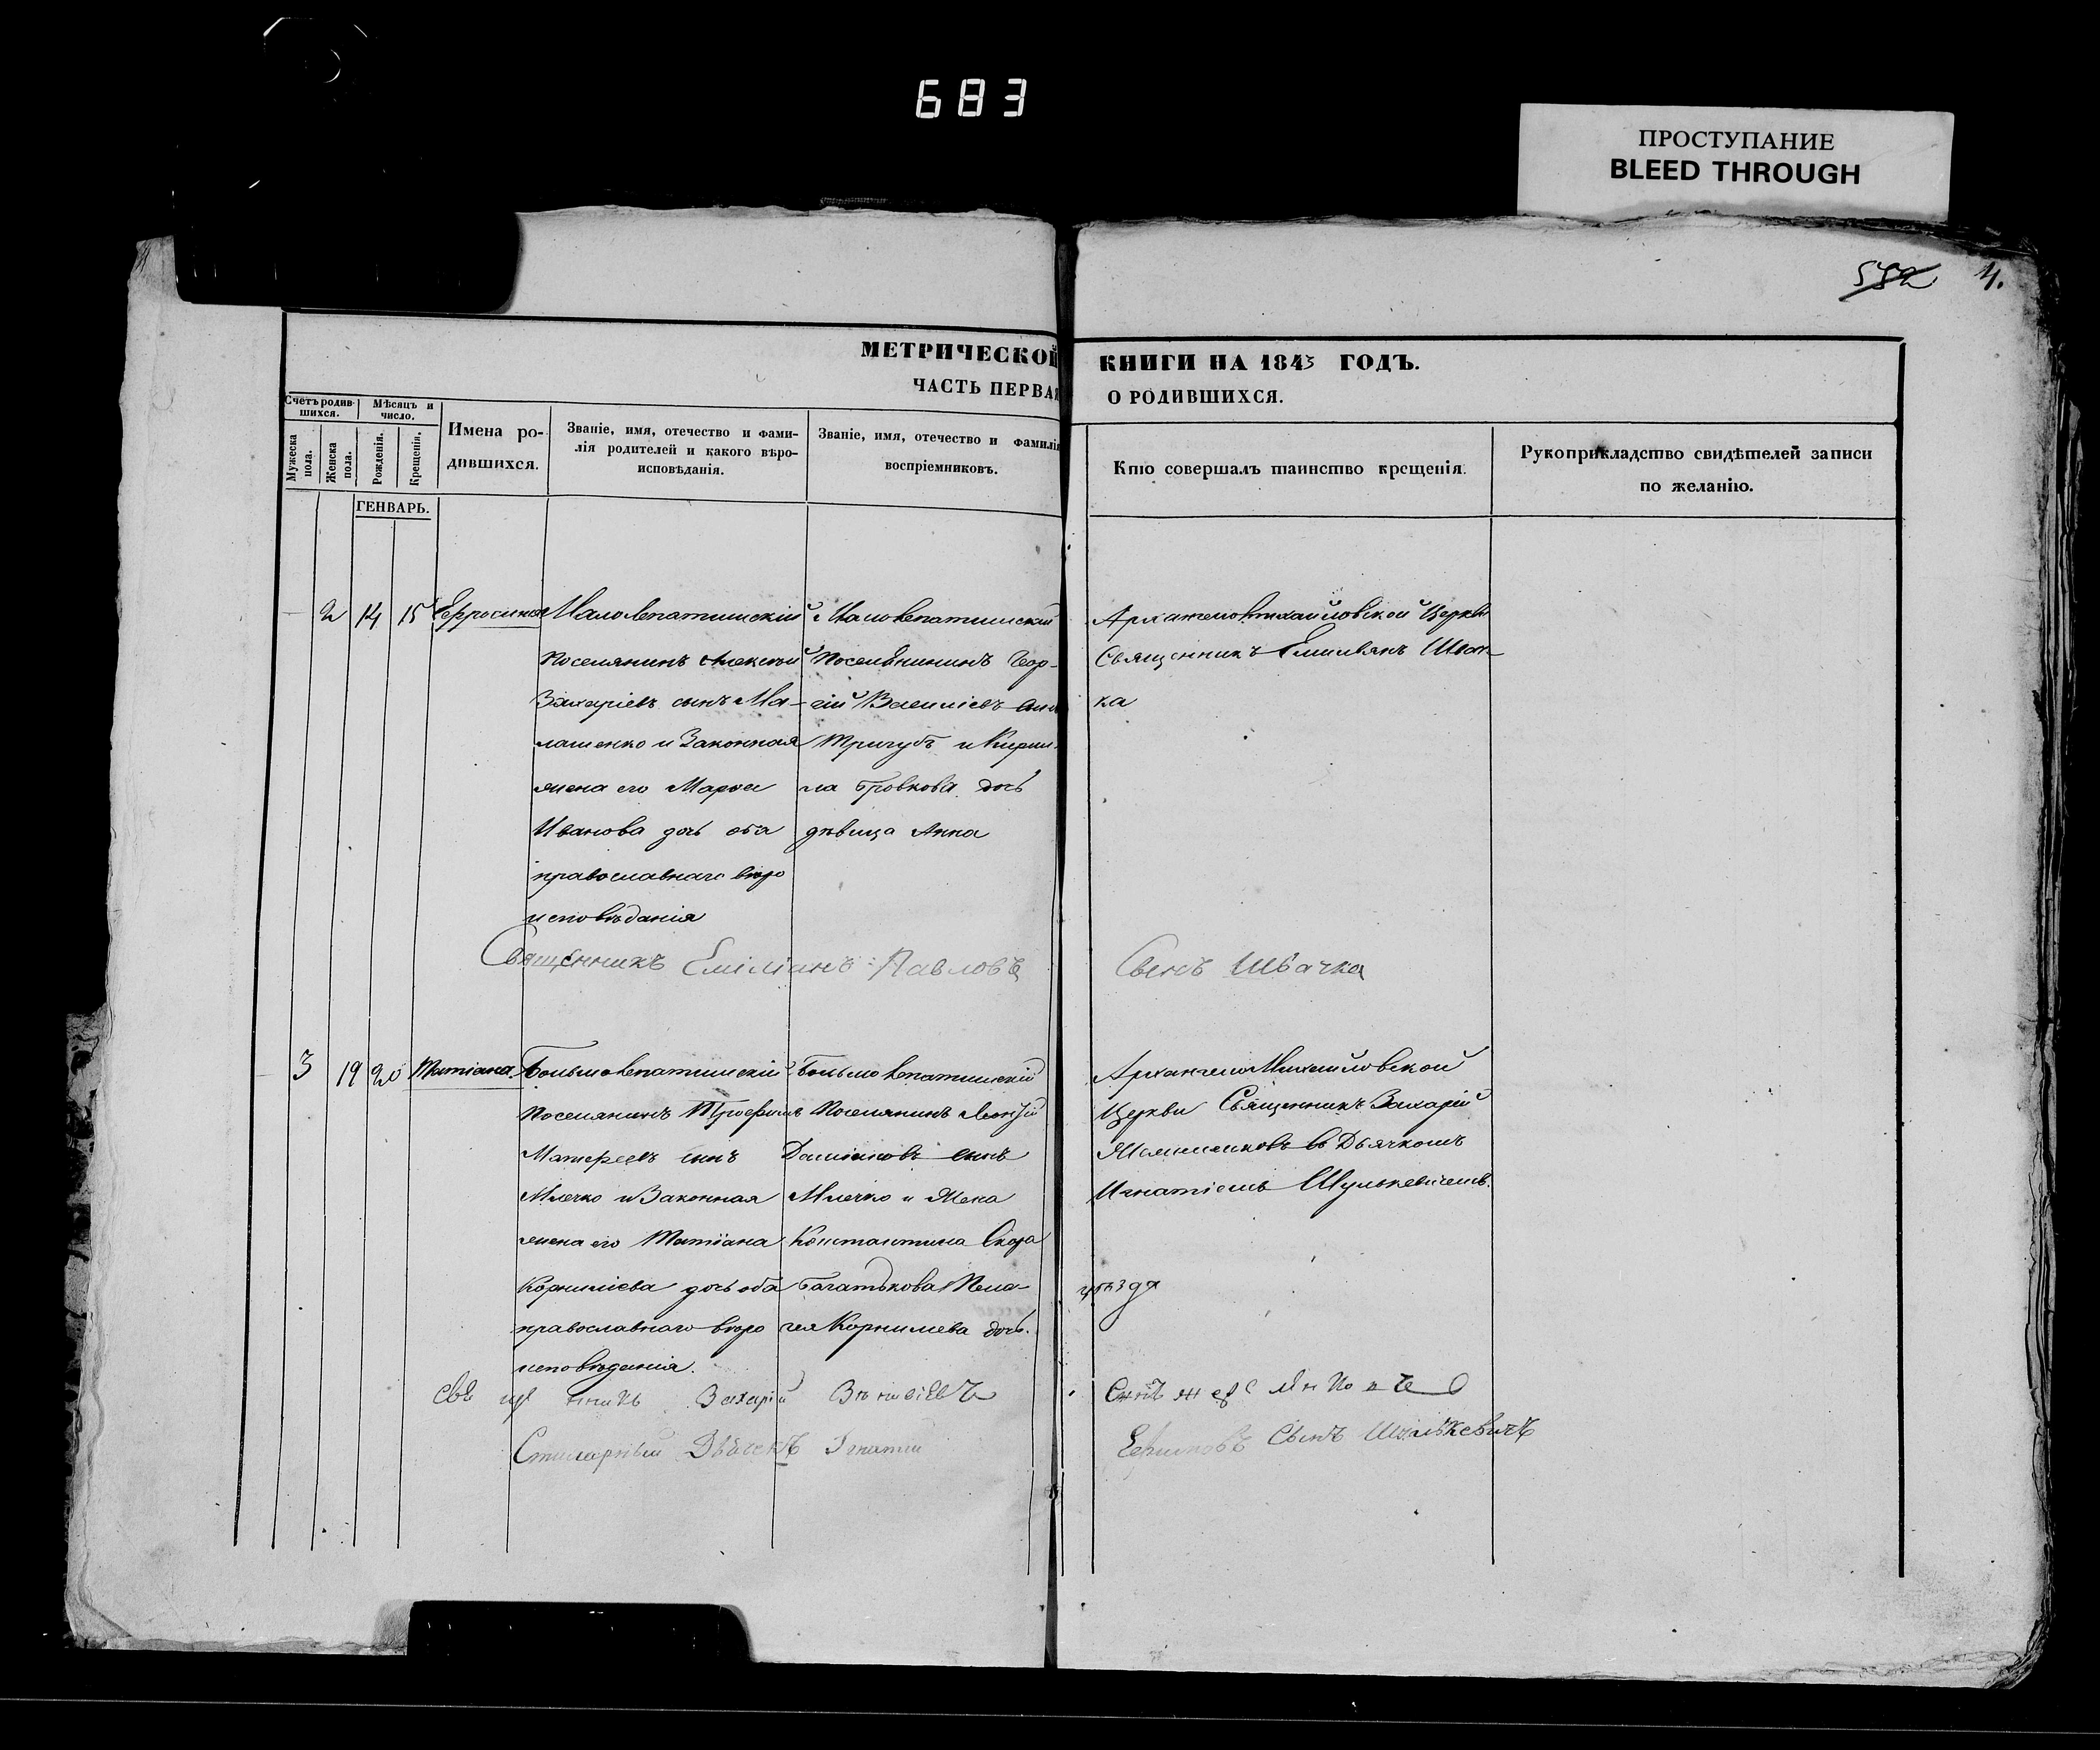 683
ПРОСТУПАНИЕ
BLEED THROUGH
552 4.
МЕТРИЧЕСКОЙ КНИГИ НА 1843 ГОДЪ.
ЧАСТЬ ПЕРВАЯ О РОДИВШИХСЯ.
Счетъ родившихся.
Мѣсяцъ и число.
Мужеска пола.
Женска пола.
Рожденія.
Крещенія.
Имена родившихся.
Званіе, имя, отечество и фамилія родителей и какого вѣроисповѣданія.
Званіе, имя, отечество и фамилія воспріемниковъ.
Кто совершалъ таинство крещенія.
Рукоприкладство свидѣтелей записи по желанію.
ГЕНВАРЬ.
2 14 15 Ефросинія
Малолепатишскій
поселянинъ Алексѣй
Захаріевъ сынъ Ма-
лашенко и Законная
жена его Марѳа
Иванова дочь оба
православнаго вѣро
исповѣданія
Малолепатишскій
поселянинъ Геор-
гій Василіевъ сынъ
Тригубъ и Кирил-
ла дочь
дѣвица Анна
АрхангелоМихайловской Церкви
Священникъ Емиліанъ Швач-
ка
Священникъ Еміліанъ Павловъ Сынъ Швачка
3 19 20 Татіана
Большолепатишскій
поселянинъ Трофимъ
Матфеевъ сынъ
Млечко и Законная
жена его Татіана
Корниліева дочь оба
православнаго вѣро
исповѣданія.
Большолепатишскій
поселянинъ Леонтій
Даміановъ сынъ
Млечко и Жена
Константина Скора
Пела-
гея Корнилиева дочь.
АрхангелоМихайловской
Церкви Священникъ Захарій
съ Дьячкомъ
Игнатіемъ Шулькевичемъ.
Захарій
Дьячекъ Игнатій Сынъ Шулькевичъ